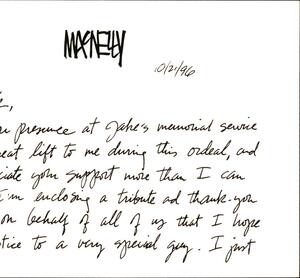 MACNELLY
10/21/96
e,
presence at Jake's memorial service
eat lift to me during this ordeal, and
ciate your support more than I can
I'm enclosing a tribute ad thank-you
on behalf of all of us that I hope
tice to a very special guy. I just